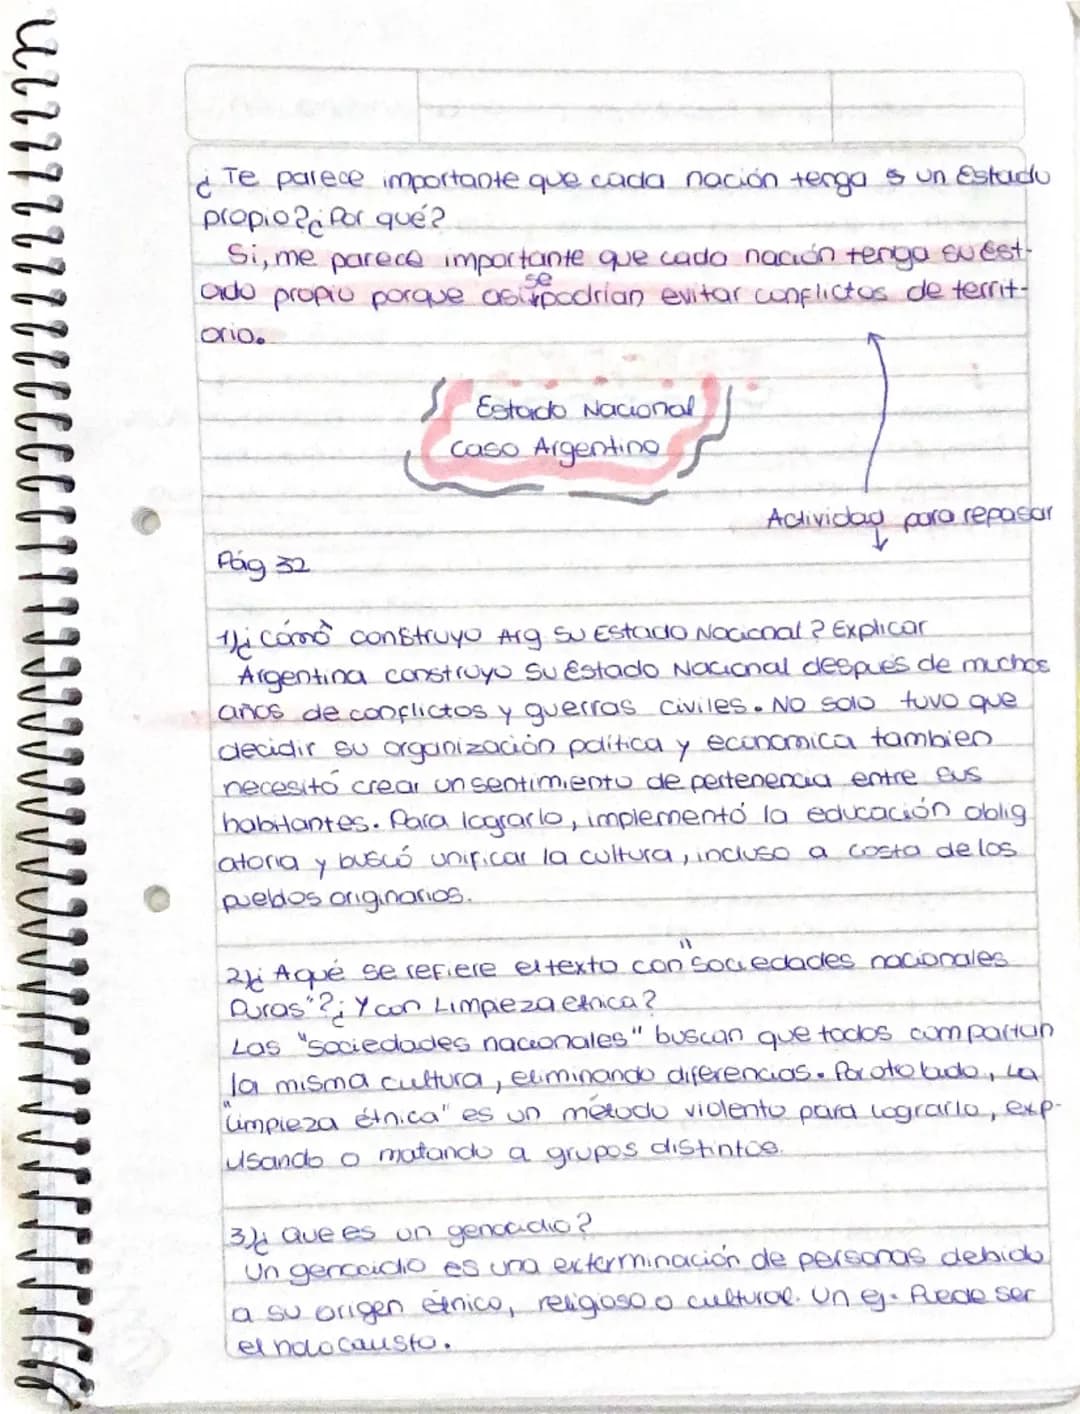 ¿Te parece importante que cada nación tenga un Estado
propio?¿Por qué?
Si, me parece importante que cada nación tenga su est-
ado propio porque asi se podrian evitar conflictos de territ-
orio.
Estado Nacional
caso Argentino
Actividad para repasar
Pág 32
1)¿cómo construyo Arg su Estado Nacional? Explicar
Argentina construyo su Estado Nacional después de muchos
años de conflictos y guerras civiles. No solo tuvo que
decidir su organización política y economica tambien
necesitó crear un sentimiento de pertenencia entre sus
habitantes. Para lograrlo, implementó la educación oblig
atoria y buscó unificar la cultura, incluso a costa de los
pueblos originarios.
2)¿Aqué se refiere el texto con "sociedades nacionales
Puras"?¿Y con Limpieza etnica?
Las "sociedades nacionales" buscan que todos compartan
la misma cultura, eliminando diferencias. Por oto lado, La
"limpieza étnica" es un método violento para lograrlo, exp-
usando o matando a grupos distintos.
3)¿Que es un genocidio?
Un genocidio es una exterminación de personas debido
a su origen étnico, religioso o cultural. Un ej. Puede ser
el holocausto.